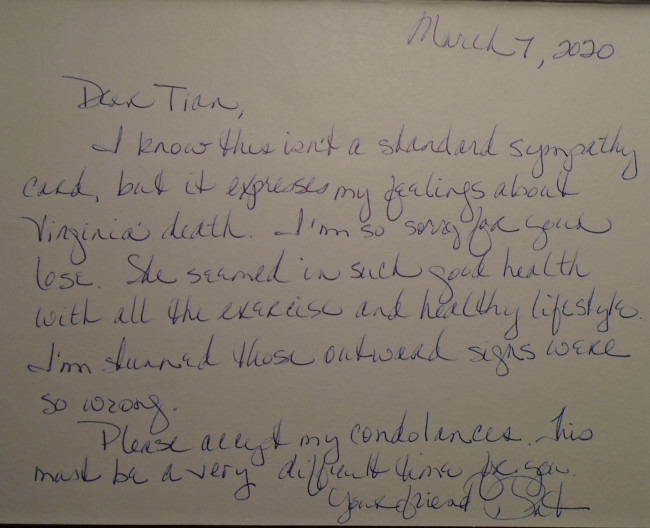 March 7, 2020
Dear Tian,
I know this isn't a standard sympathy
card, but it expresses my feelings about
Virginia death. I'm so sorry for your
lose. She seamed in such good health
with all the exercise and healthy lifestyle.
I'm stunned those outward signs were
so wrong.
Please accept my condolances. This
must be a very difficult time for you.
Your friend